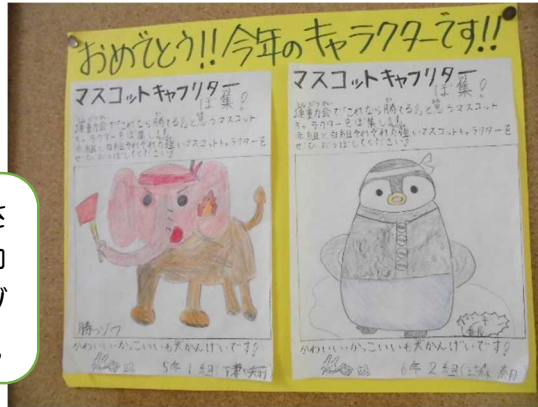 おめでとう!!今年のキャラクターです!!
マスコットキャラクター
ぼ集!
運動会で「これなら勝てる」と思うマスコット
キャラクターをぼ集します。
赤組と白組それぞれの強いマスコットキャラクターを
ぜひおうぼしてください!
勝つゾウ
かわいいかっこいいも大かんげいです!
5年1組
マスコットキャラクター
ぼ集!
運動会で「これなら勝てる」と思うマスコット
キャラクターをぼ集します。
赤組と白組それぞれの強いマスコットキャラクターを
ぜひおうぼしてください!
かわいいかっこいいも大かんげいです!
6年2組